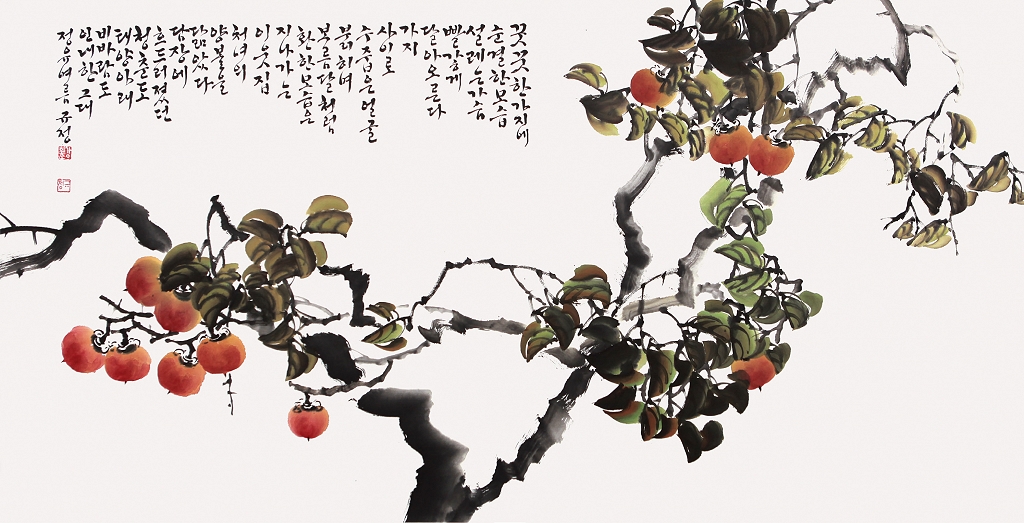 꼿꼿한 가지에
순결한 모습
설레는 가슴
빨갛게
달아오른다
가지
사이로
수줍은 얼굴
붉히며
보름달처럼
환한 모습은
지나가는
이웃집
처녀의
양볼을
닮았다
담장에
흐드러졌던
청춘도
태양아래
비바람도
인내한 그대
정유여름 규정